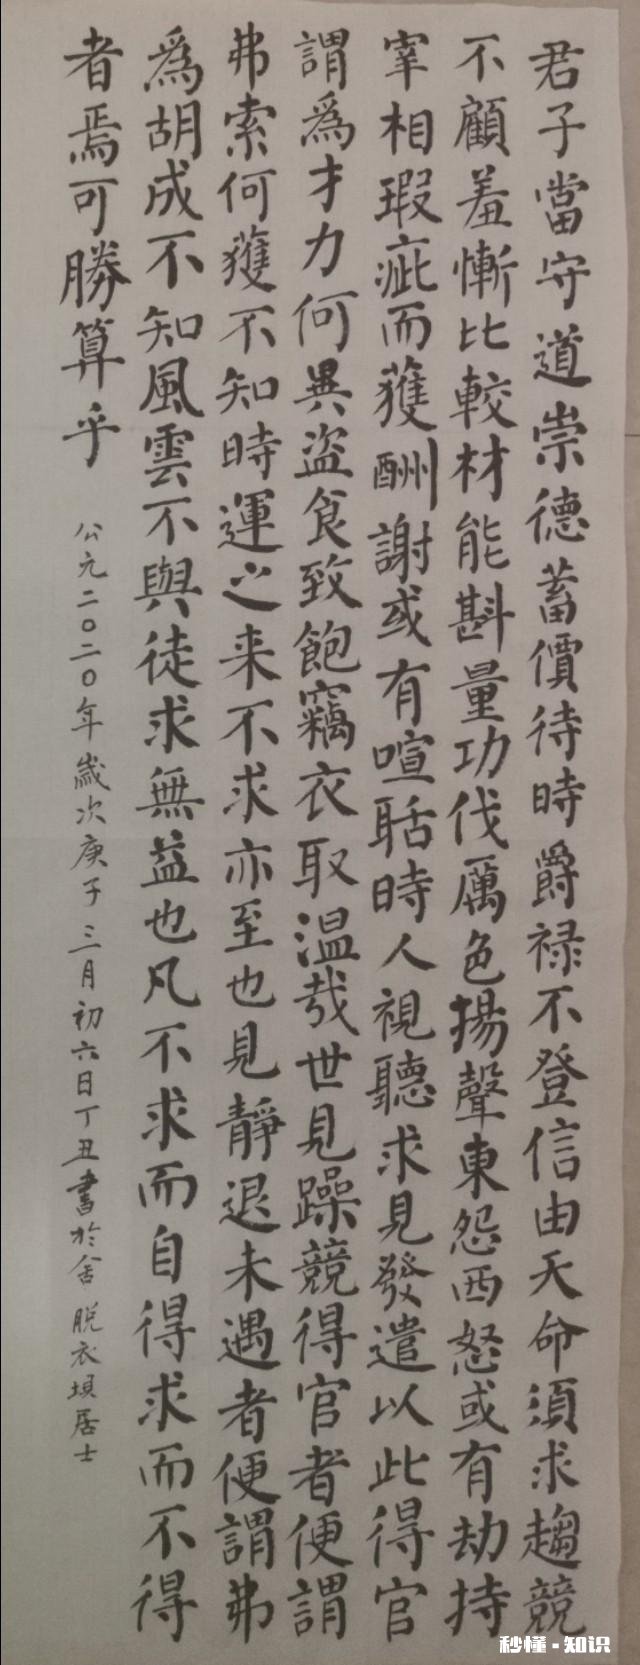 君子當守道崇德蓄價待時爵禄不登信由天命須求趨競
不顧羞慚比較材能斟量功伐厲色揚聲東怨西怒或有劫持
宰相瑕疵而獲酬謝或有喧聒時人視聽求見發遣以此得官
謂為才力何異盗食致飽竊衣取温哉世見躁競得官者便謂
弗索何獲不知時運之来不求亦至也見靜退未遇者便謂弗
為胡成不知風雲不與徒求無益也凡不求而自得求而不得
者焉可勝算乎
公元二〇二〇年歲次庚子三月初六日丁丑書於舍 脱衣垻居士
秒懂·知识